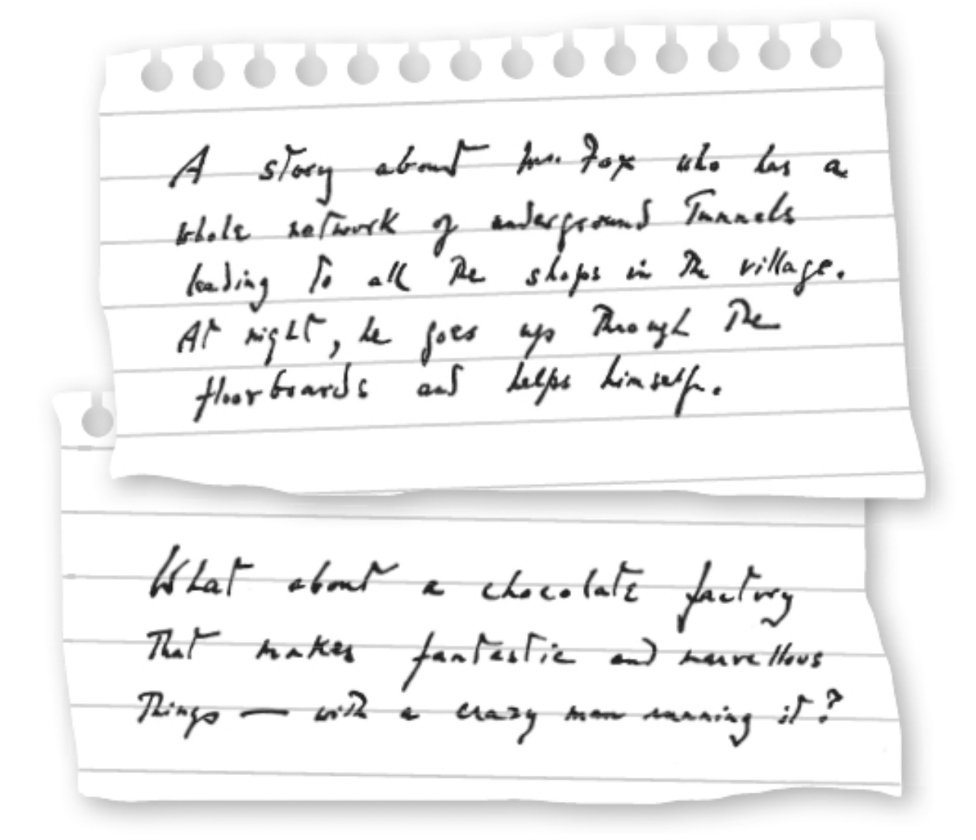 A story about Mr. Fox who has a
whole network of underground Tunnels
leading To all The shops in The village.
At night, he goes up Through The
floorboards and helps himself.
What about a chocolate factory
That makes fantastic and marvellous
Things — with a crazy man running it?